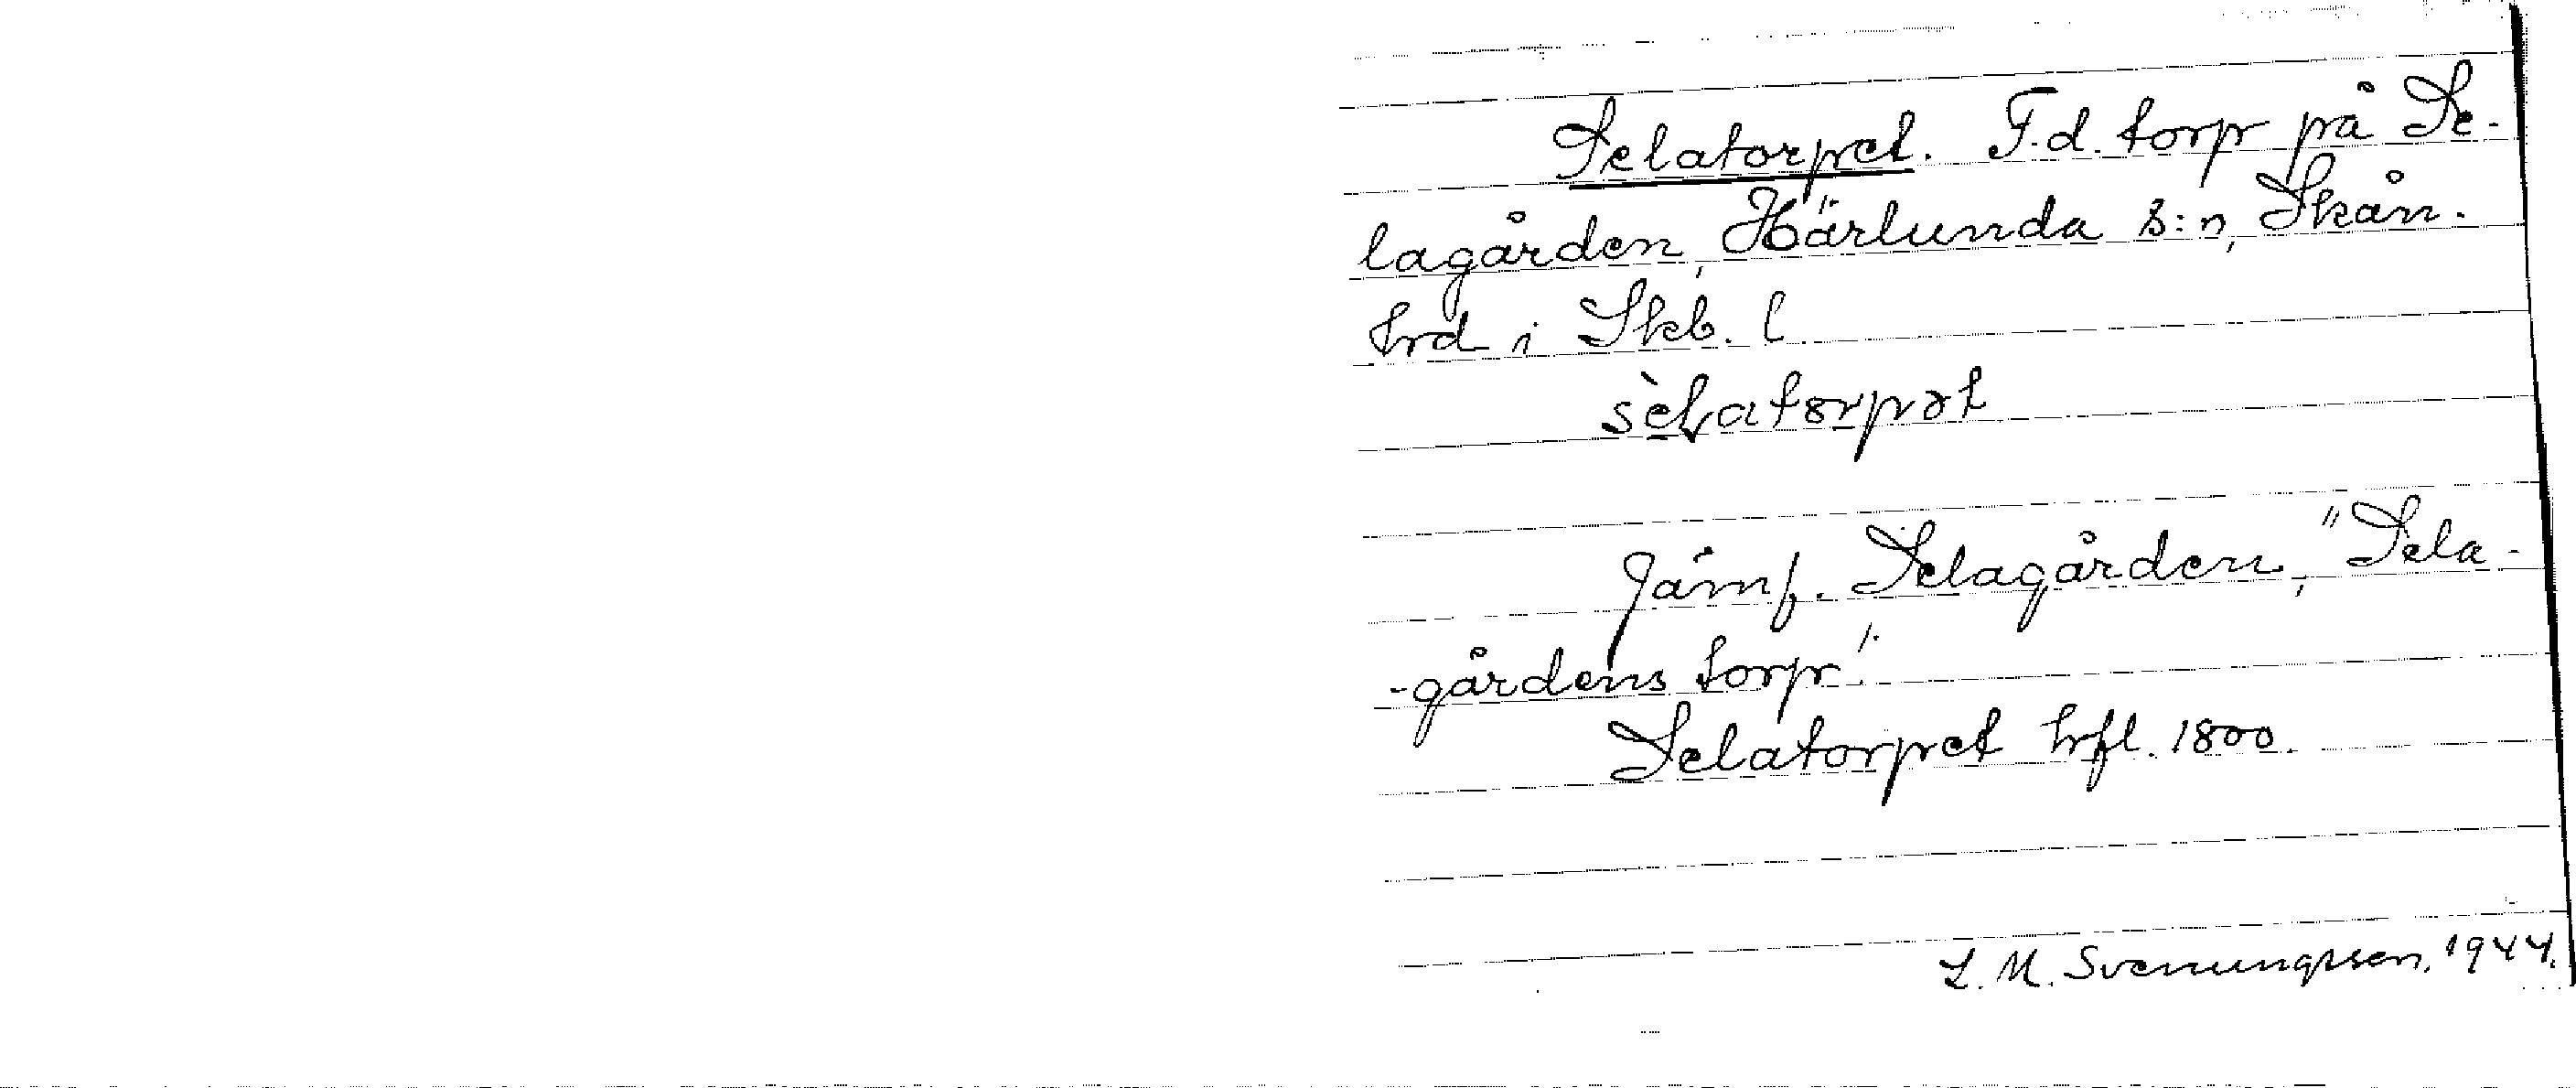 Selatorpet. F.d. torp på Se-
lagården, Härlunda s:n, Skån.
hrd i Skb. l
sèlatorpət
Jämf. Selagården, "Sela-
-gårdens torp".
Selatorpet hfl. 1800.
L. M. Svenungsson, 1944.